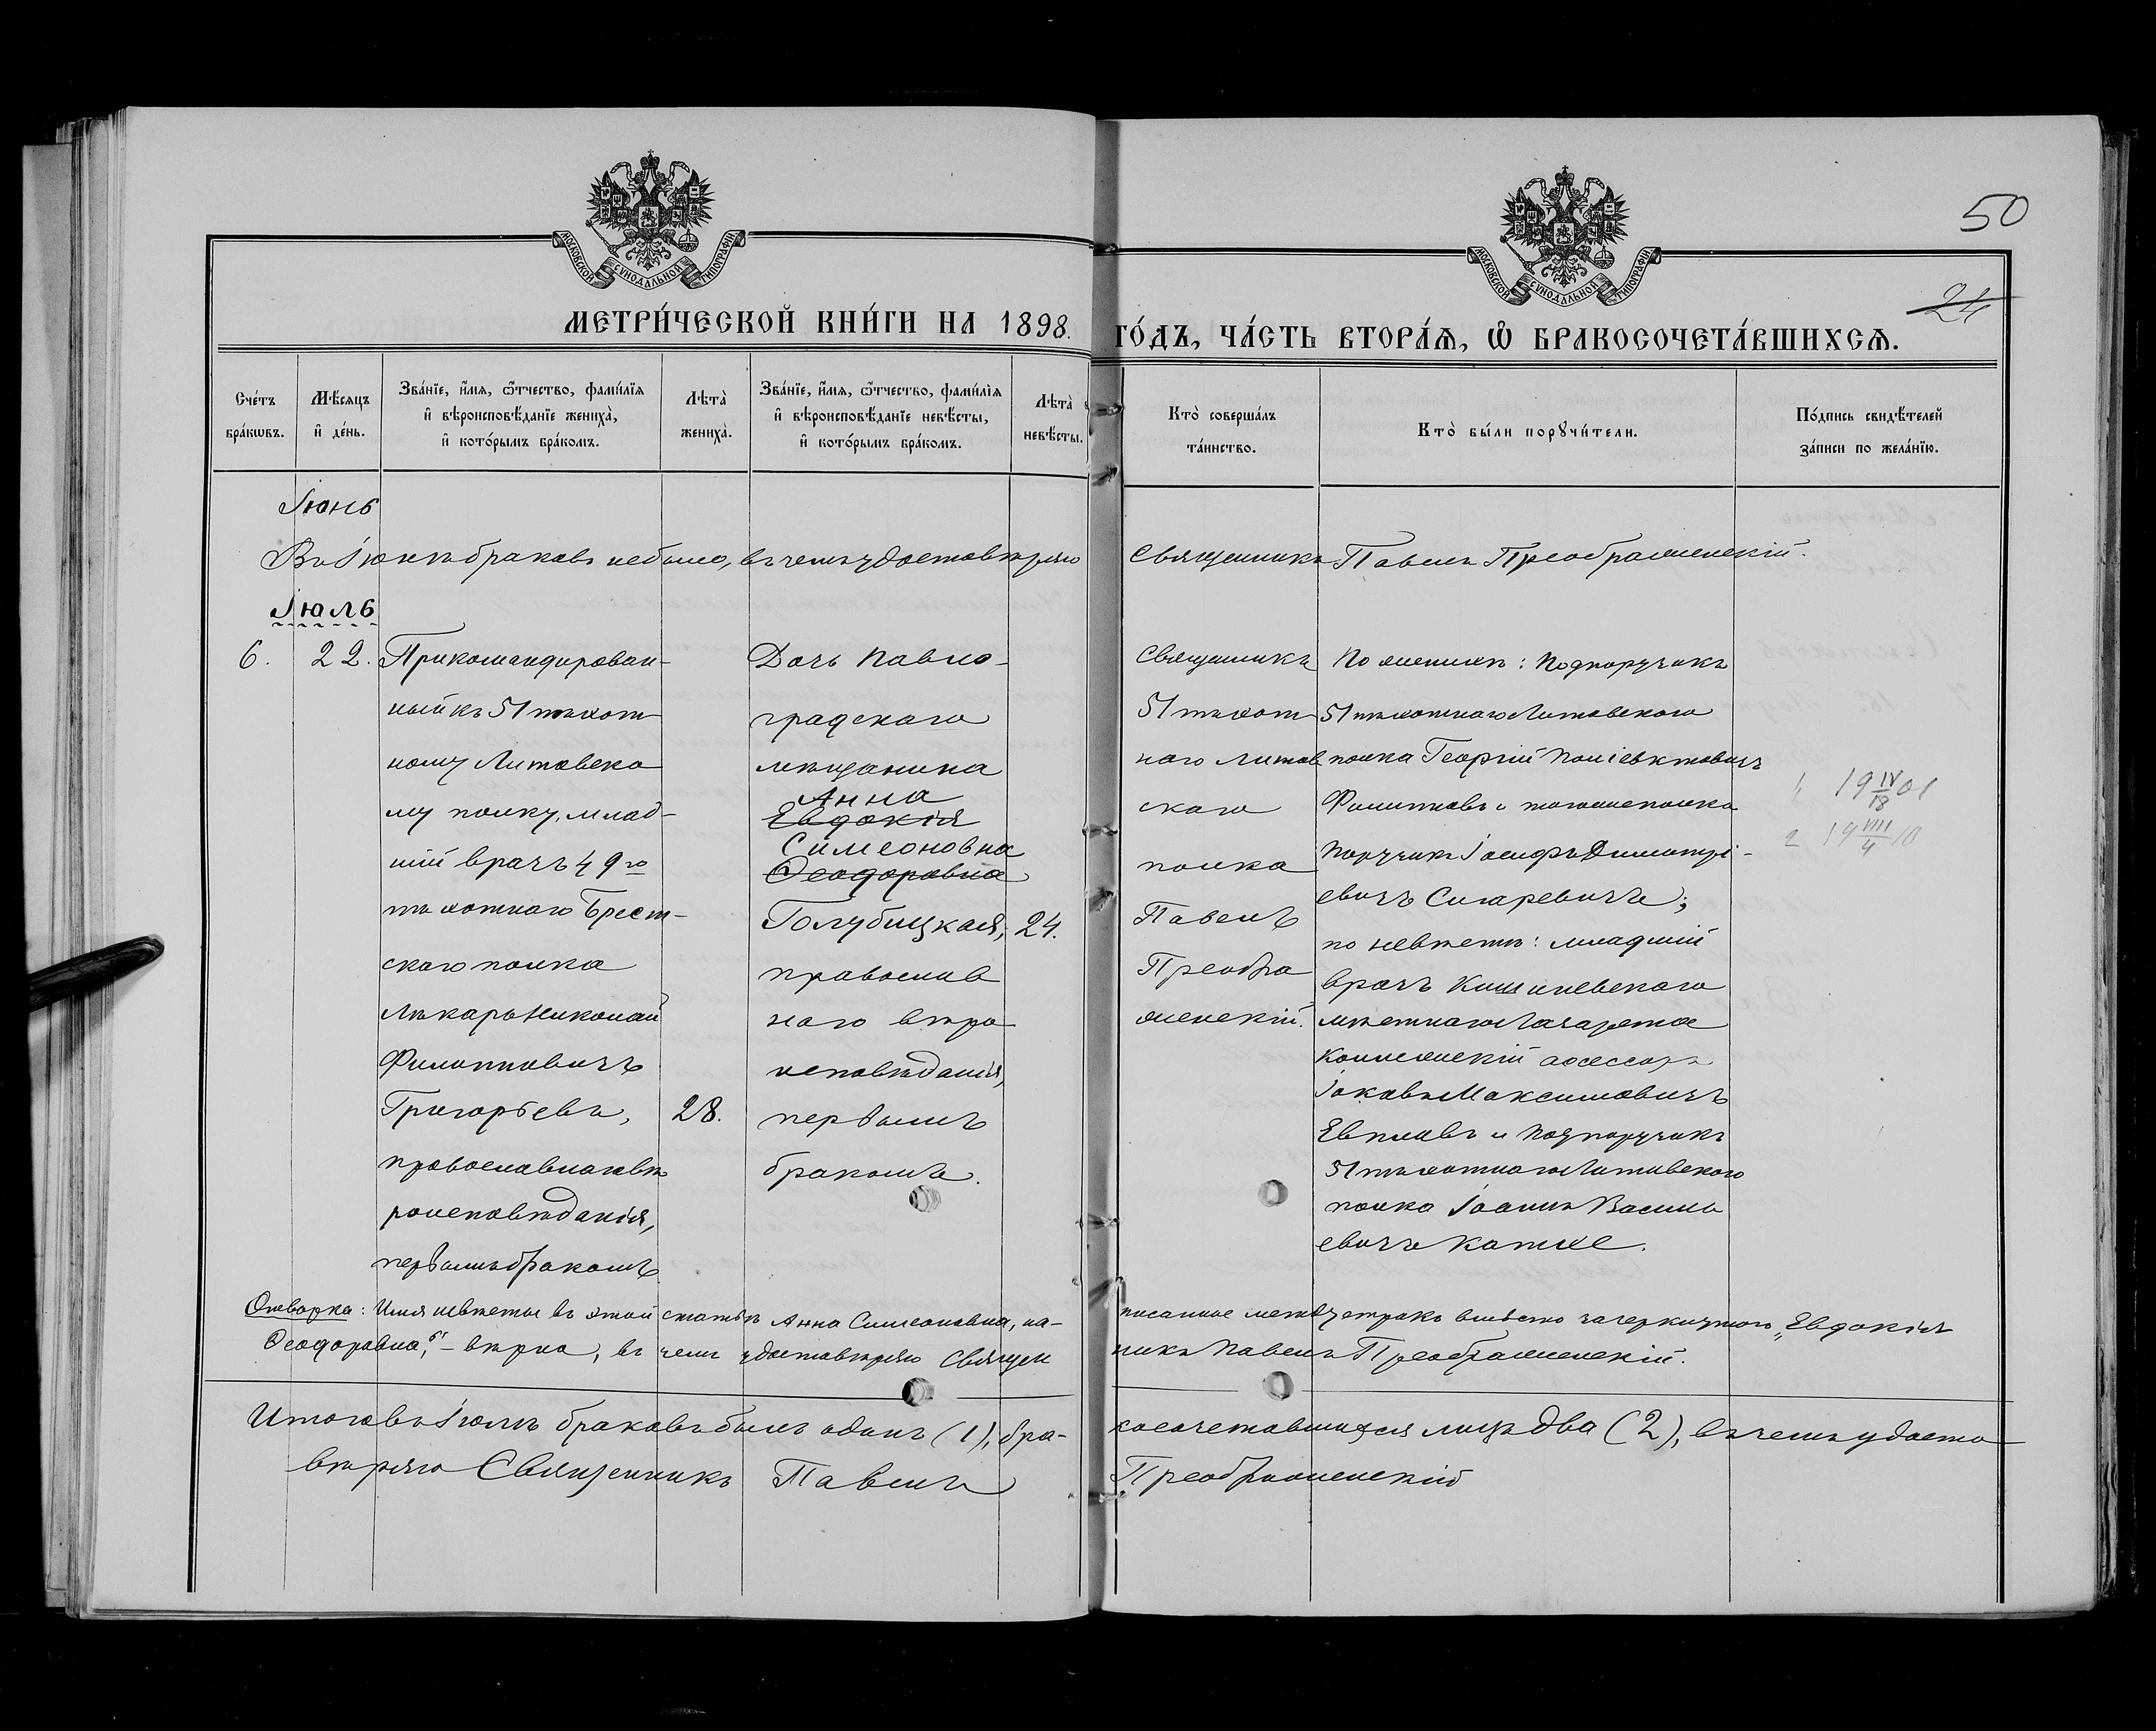 МОСКОВСКОЙ СѴНОДАЛЬНОЙ ТИПОГРАФІИ
МОСКОВСКОЙ СѴНОДАЛЬНОЙ ТИПОГРАФІИ
50
24
МЕТРИ́ЧЕСКОЙ КНИ́ГИ НА 1898. ГО́ДЪ, ЧА́СТЬ ВТОРА́Ѧ, Ѡ҆ БРАКОСОЧЕТА́ВШИХСѦ.
Сче́тъ
бра́кѡвъ.
Мѣ́сяцъ
и҆ де́нь.
Зва́нїе, и҆́мѧ, ѻ҆́тчество, фами́лїѧ
и҆ вѣроисповѣ́данїе жениха̀,
и҆ кото́рымъ бра́комъ.
Лѣта̀
жениха̀.
Зва́нїе, и҆́мѧ, ѻ҆́тчество, фами́лїѧ
и҆ вѣроисповѣ́данїе невѣ́сты,
и҆ кото́рымъ бра́комъ.
Лѣта̀
невѣ́сты.
Кто̀ соверша́лъ
та́инство.
Кто̀ бы́ли порꙋчи́тели.
По́дпись свидѣ́телей
за́писи по жела́нїю.
Іюнь
Въ Іюнѣ браковъ не было, въ чемъ удостовѣряю Священникъ Павелъ Преображенскій.
Іюль
6.
22.
Прикомандирован-
ный къ 51 пѣхот
ному Литовско
му полку, млад-
шій врачъ 49го
пѣхотнаго Брест-
скаго полка
Лѣкарь Николай
Филипповичъ
Григорьевъ,
православнаго вѣ
роисповѣданія,
первымъ бракомъ
28.
Дочь Павло-
градскаго
мѣщанина
Анна
Евдокія
Симеоновна
Ѳеодоровна
Голубицкая,
правослaв
наго вѣро
исповѣданія,
первымъ
бракомъ.
24.
Священникъ
51 пѣхот
наго Литов
скаго
полка
Павелъ
Преобра
женскій.
По женихѣ: Подпоручикъ
51 пѣхотнаго Литовскаго
полка Георгій Поліевктовичъ
Филипповъ и тогоже полка
Поручикъ Іосифъ Димитрі-
евичъ Сигаревичъ;
по невѣстѣ: младшій
врачъ Кишиневскаго
мѣстнаго Лазарета
Коллежскій ассесоръ
Іаковъ Максимовичъ
Евпловъ и Подпоручикъ
51 пѣхотнаго Литовскаго
полка Іоаннъ Василь
евичъ Катхе.
1, 19 IV/18 01
2 19 VIII/4 10
Оговорка: Имя невѣсты въ этой статьѣ Анна Симеоновна, на-писанное между строкъ вмѣсто зачеркнутого „Евдокія
Ѳеодоровна", – вѣрно, въ чемъ удостовѣряю Священ никъ Павелъ Преображенскій.
Итого въ Іюлѣ браковъ былъ одинъ (1), бра-косочетавшихся лицъ два (2), въ чемъ удосто
вѣряю Священникъ Павелъ Преображенскій